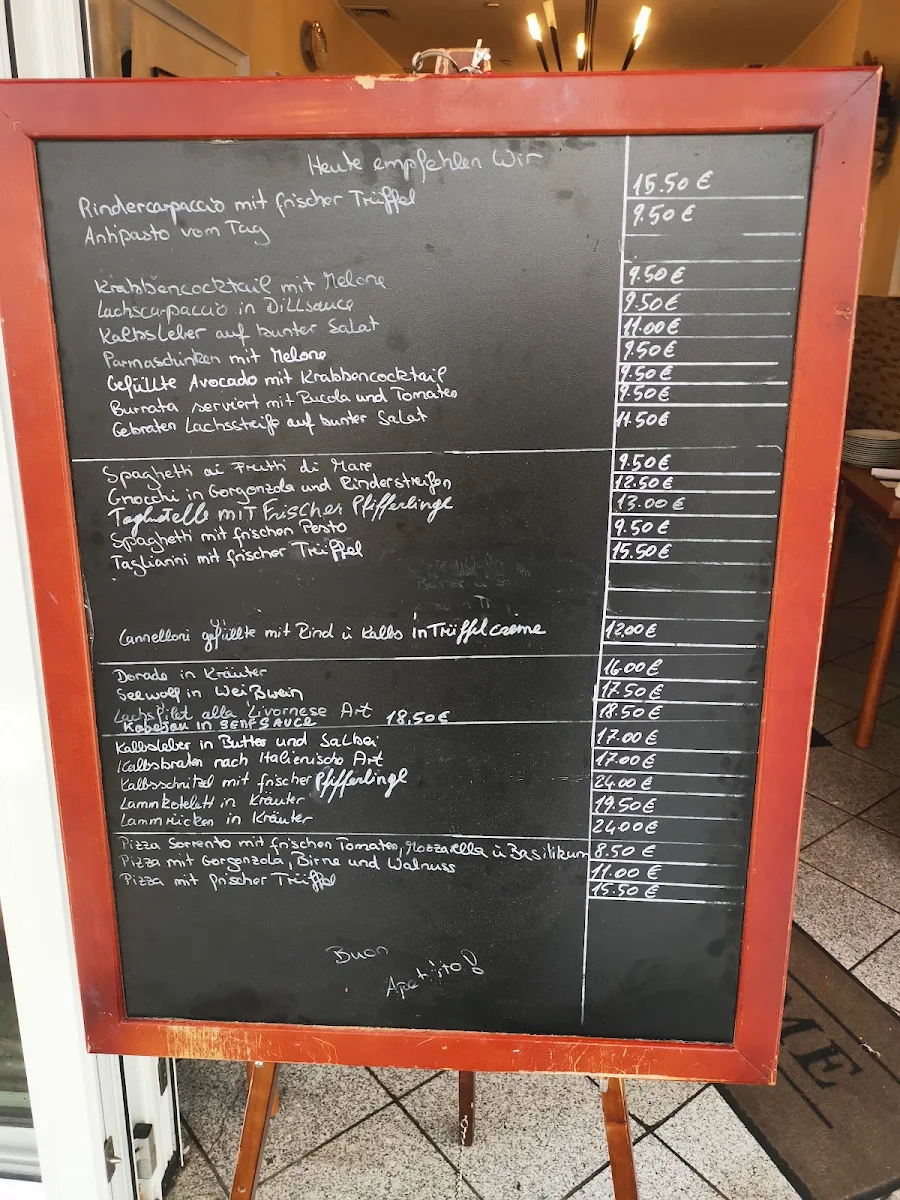 Heute empfehlen Wir
Rindercarpaccio mit frischer Trüffel 15.50 €
Antipasto vom Tag 9.50 €
Krabbencocktail mit Melone 9.50 €
Lachscarpaccio in Dillsauce 9.50 €
Kalbsleber auf bunter Salat 11.00 €
Parmaschinken mit Melone 9.50 €
Gefüllte Avocado mit Krabbencocktail 9.50 €
Burrata serviert mit Rucola und Tomaten 9.50 €
Gebraten Lachssteife auf bunter Salat 11.50 €
Spaghetti ai Frutti di Mare 9.50 €
Gnocchi in Gorgonzola und Rinderstreifen 12.50 €
Tagliatelle mit Frischer Pfifferlinge 13.00 €
Spaghetti mit frischen Pesto 9.50 €
Tagliarini mit frischer Trüffel 15.50 €
Cannelloni gefüllte mit Rind ü Kalb in Trüffelcreme 12.00 €
Dorade in Kräuter 16.00 €
Seewolf in Weißwein 17.50 €
Lachsfilet alla Livornese Art 18.50 €
Kabeljau in SENFSAUCE 18.50 €
Kalbsleber in Butter und Salbei 17.00 €
Kalbsbraten nach Italienische Art 17.00 €
Kalbsschnitzel mit frischer Pfifferlinge 24.00 €
Lammkotelett in Kräuter 19.50 €
Lammrücken in Kräuter 24.00 €
Pizza Sorrento mit frischen Tomaten, Mozzarella ü Basilikum 8.50 €
Pizza mit Gorgonzola, Birne und Walnuss 11.00 €
Pizza mit frischer Trüffel 15.50 €
Buon
Apetito!